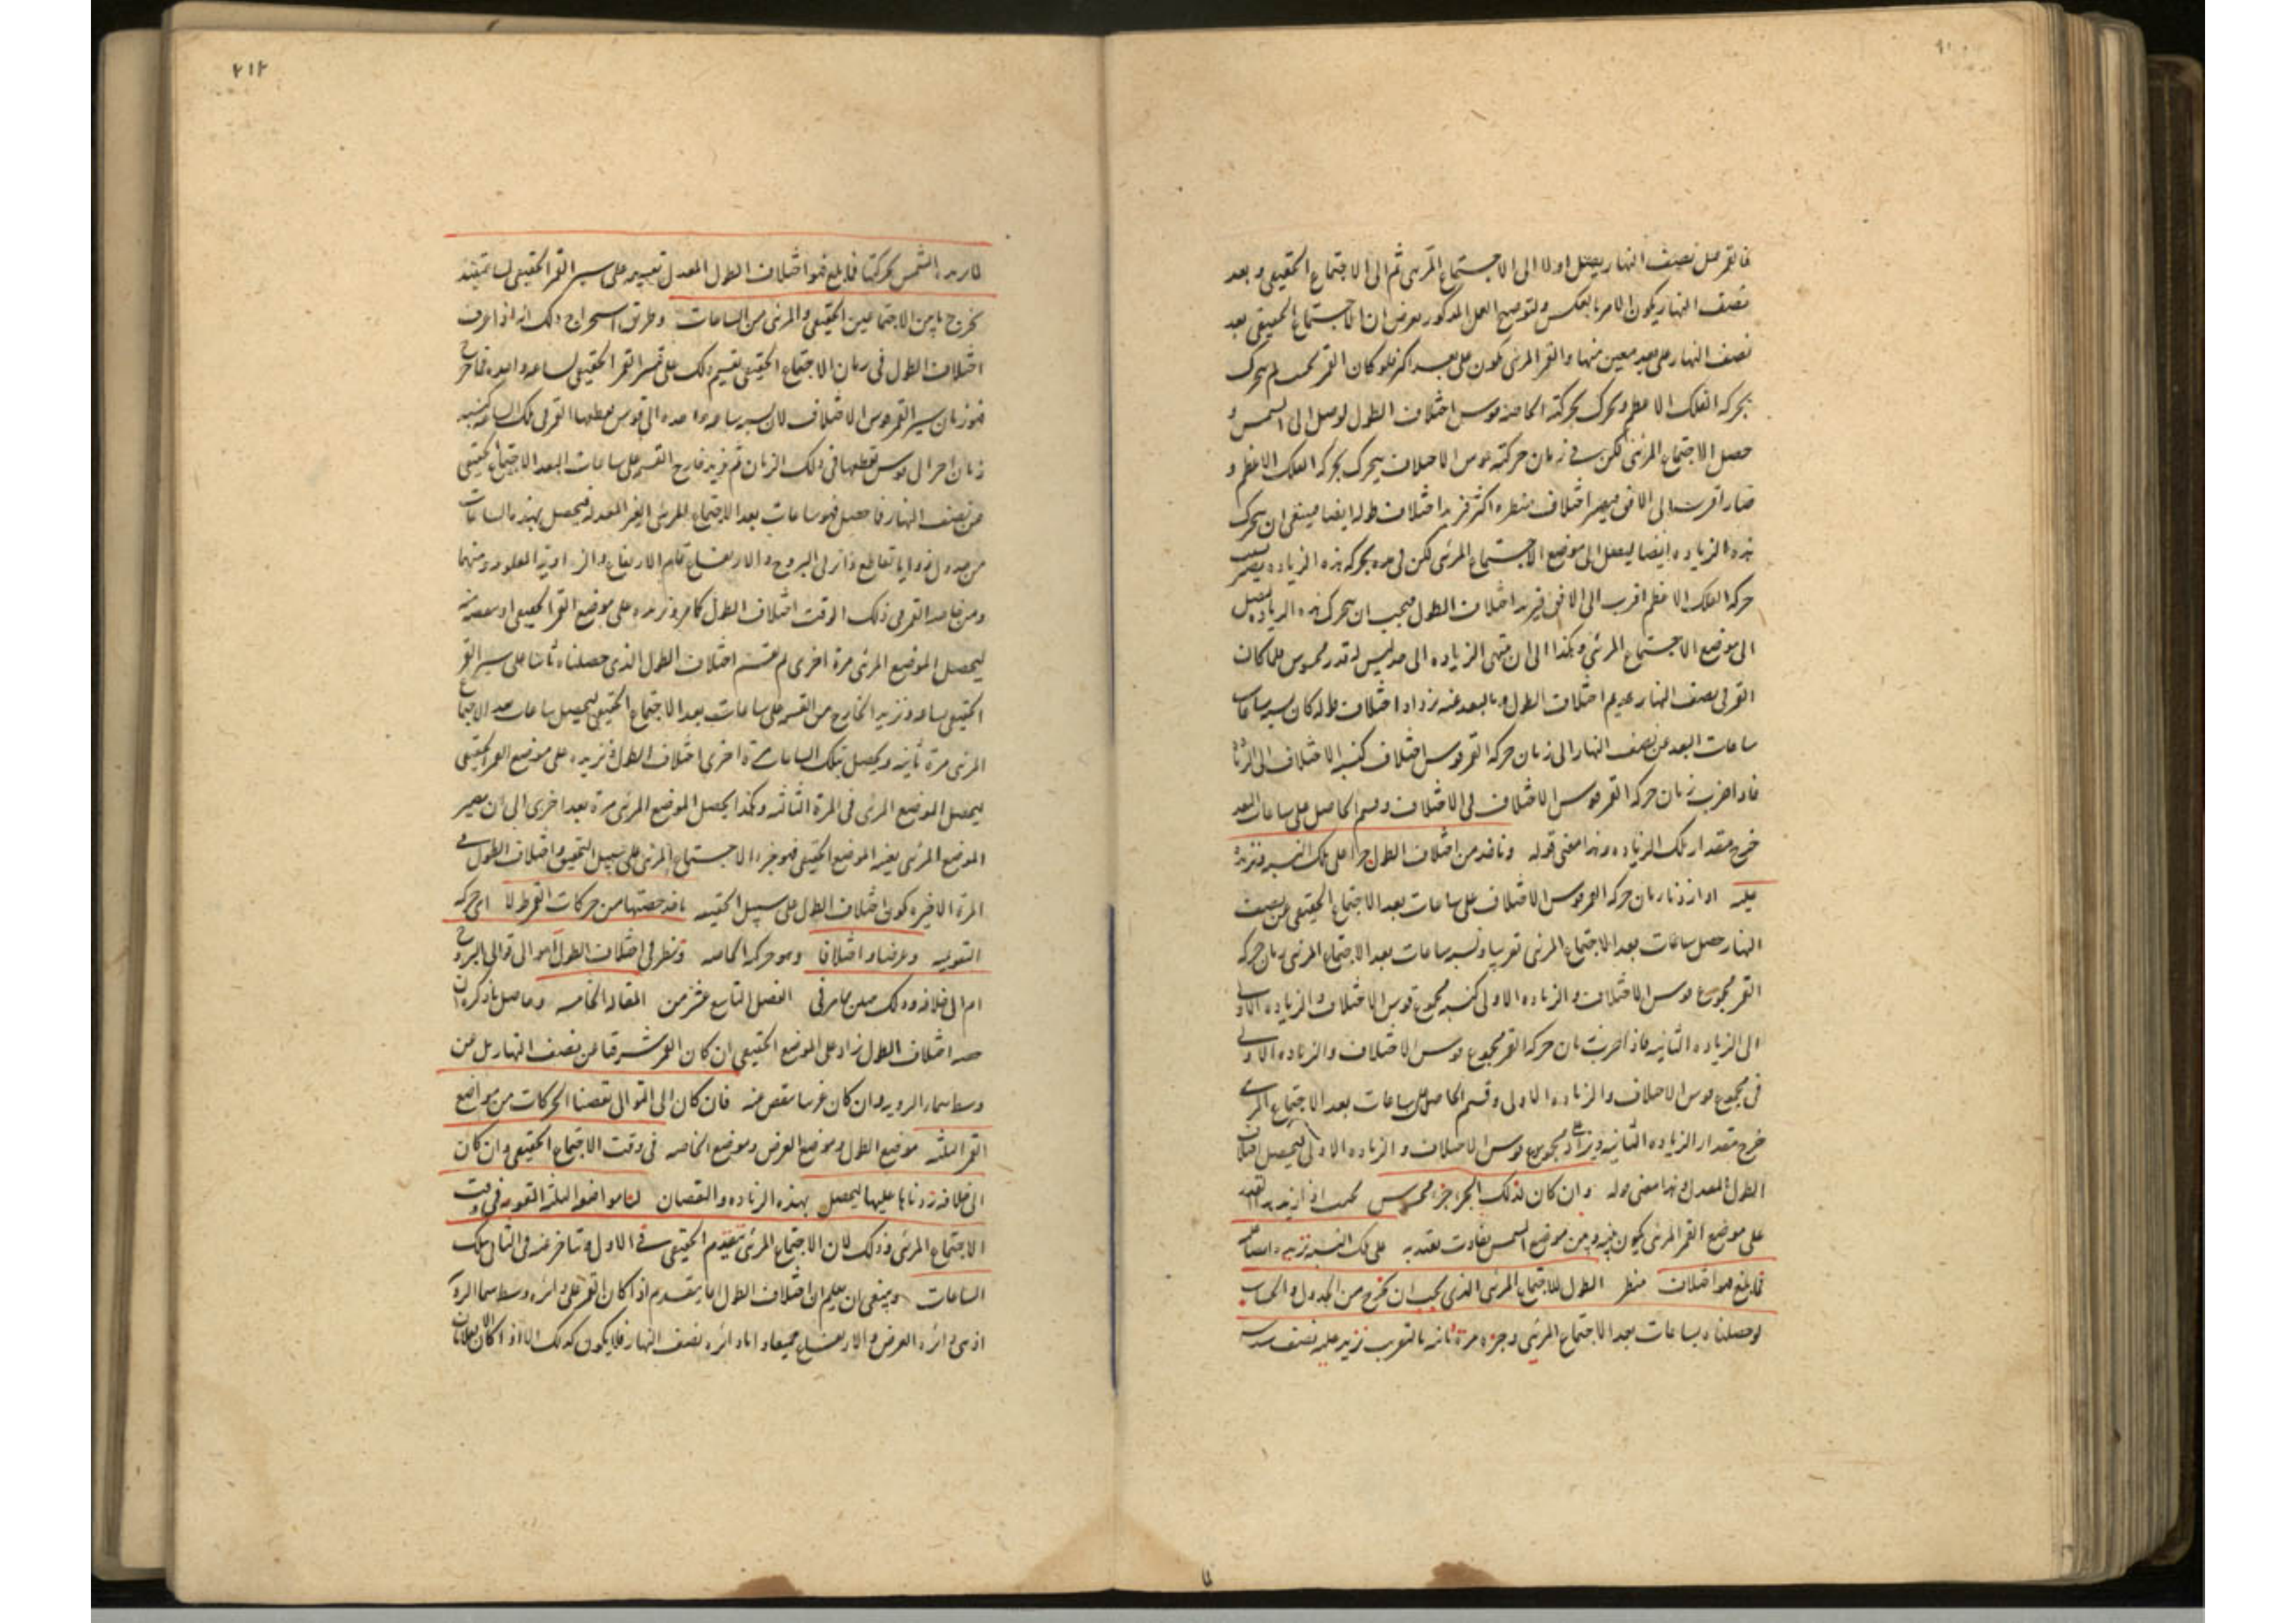 فالقمر قبل نصف النهار يصل اولا الى الاجتماع المرئى ثم الى الاجتماع الحقيقى و بعد
نصف النهار يكون الامر بالعكس ولتوضيح العمل المذكور نفرض ان الاجتماع الحقيقى بعد
نصف النهار على بعد معين منها والقمر المرئى يكون على بعد اكثر فلو كان القمر بحيث لم يتحرك
بحركة الفلك الاعظم وتحرك بحركته الخاصة قوس اختلاف الطول لوصل الى الشمس و
حصل الاجتماع المرئى لكن فى زمان حركته قوس الاختلاف يتحرك بحركة الفلك الاعظم و
صار اقرب الى الافق فيصير اختلاف منظره اكثر فزيد اختلاف طوله ايضا فينبغى ان يتحرك
هذه الزيادة ايضا ليصل الى موضع الاجتماع المرئى لكن فى مدة بحركة هذه الزيادة يصير بسبب
حركة الفلك الاعظم اقرب الى الافق فيزيد اختلاف الطول فيجب ان يتحرك هذه الزيادة ليصل
الى موضع الاجتماع المرئى وهكذا الى ان ينتهى الزيادة الى حد ليس له قدر محسوس فلما كان
القمر فى نصف النهار عديم اختلاف الطول وبالبعد عنه يزداد اختلاف طوله كان نسبة ساعات
ساعات البعد عن نصف النهار الى زمان حركة القمر قوس اختلاف كنسبة الاختلاف الى الزيادة
فاذا ضرب زمان حركة القمر قوس الاختلاف فى الاختلاف وقسم الحاصل على ساعات البعد
خرج مقدار تلك الزيادة وهذا معنى قوله وناخذ من اختلاف الطول جزءا على تلك النسبة ونزيده
عليه اذا زدنا زمان حركة القمر قوس الاختلاف على ساعات بعد الاجتماع الحقيقى عن نصف
النهار حصل ساعات بعد الاجتماع المرئى تقريبا ونسبة ساعات بعد الاجتماع المرئى زمان حركة
القمر مجموع قوس الاختلاف والزيادة الاولى كنسبة مجموع قوس الاختلاف والزيادة الاولى
الى الزيادة الثانية فاذا ضربت زمان حركة القمر مجموع قوس الاختلاف والزيادة الاولى
فى مجموع قوس الاختلاف والزيادة الاولى وقسم الحاصل على ساعات بعد الاجتماع المرئى
خرج مقدار الزيادة الثانية ويزاد على مجموع قوس الاختلاف والزيادة الاولى ليحصل اختلاف
الطول المعدل وهذا معنى قوله وان كان لذلك الجزء جزء محسوس بحيث اذا زيد
على موضع القمر المرئى يكون بينه وبين موضع الشمس تفاوت يعتد به على تلك النسبة نزيده ايضا عليه
فما بلغ فهو اختلاف منظر الطول للاجتماع المرئى الذى يجب ان يخرج من الجدول والحساب
لو حصلناه بساعات بعد الاجتماع المرئى وجزءه مرة ثانية بالتقريب نزيد عليه نصف سدسه
٢١٢
الشمس بحركتها فما بلغ فهو اختلاف الطول المعدل نقسمه على سير القمر الحقيقى لساعة
يخرج ما بين الاجتماعين الحقيقى والمرئى من الساعات وطريق استخراج ذلك انه اذا عرف
اختلاف الطول فى زمان الاجتماع الحقيقى يقسم ذلك على سير القمر الحقيقى لساعة واحدة فما خرج
فهو زمان سير القمر قوس الاختلاف لان نسبة ساعة واحدة الى قوس يقطعها القمر فى تلك الساعة كنسبة
زمان اخر الى قوس يقطعها فى ذلك الزمان ثم نزيد خارج القسمة على ساعات البعد الاجتماع الحقيقى
عن نصف النهار فما حصل فهو ساعات بعد الاجتماع المرئى الغير المعدلة فيحصل بهذه الساعات
من جدول زوايا تقاطع دائرتى البروج والارتفاع تمام الارتفاع والزاوية المعلومة ومنهما
ومن بعد القمر فى ذلك الوقت اختلاف الطول كما مر ونزيده على موضع القمر الحقيقى او ننقصه منه
ليحصل الموضع المرئى مرة اخرى ثم نقسم اختلاف الطول الذى حصلناه ثانيا على سير القمر
الحقيقى لساعة ونزيد الخارج من القسمة على ساعات بعد الاجتماع الحقيقى ليحصل ساعات بعد الاجتماع
المرئى مرة ثانية ويحصل بتلك الساعات مرة اخرى اختلاف الطول فنزيده على موضع القمر الحقيقى
ليحصل الموضع المرئى فى المرة الثالثة وهكذا يحصل الموضع المرئى مرة بعد اخرى الى ان يصير
الموضع المرئى بعينه الموضع الحقيقى فهو جزء الاجتماع المرئى على سبيل التحقيق واختلاف الطول فى
المرة الاخيرة يكون اختلاف الطول على سبيل الحقيقة ناخذ حصتها من حركات القمر طولا اى حركة
التقويم وعرضا واختلافا وهو حركة الخاصة وننظر فى اختلاف الطول اهو الى توالى البروج
ام الى خلافه وذلك مبين مما مر فى الفصل التاسع عشر من المقالة الخامسة وحاصل ما ذكره ان
حصة اختلاف الطول زاد على الموضع الحقيقى ان كان القمر شرقيا من نصف النهار بل من
وسط سماء الرؤية وان كان غربيا ينقص عنه فان كان الى التوالى نقصنا الحركات من مواضع
القمر الثلثة موضع الطول وموضع العرض وموضع الخاصة فى وقت الاجتماع الحقيقى وان كان
الى خلافه زدناها عليها ليحصل بهذه الزيادة والنقصان لنا مواضعه الثلثة التقويمية فى وقت
الاجتماع المرئى وذلك لان الاجتماع المرئى يتقدم الحقيقى فى الاول ويتاخر عنه فى الثانى بتلك
الساعات وينبغى ان يعلم ان اختلاف الطول انما ينعدم اذا كان القمر على دائرة وسط سماء الرؤية
اذ هى دائرة العرض والارتفاع جميعا واما دائرة نصف النهار فلا يكون كذلك الا اذا كان